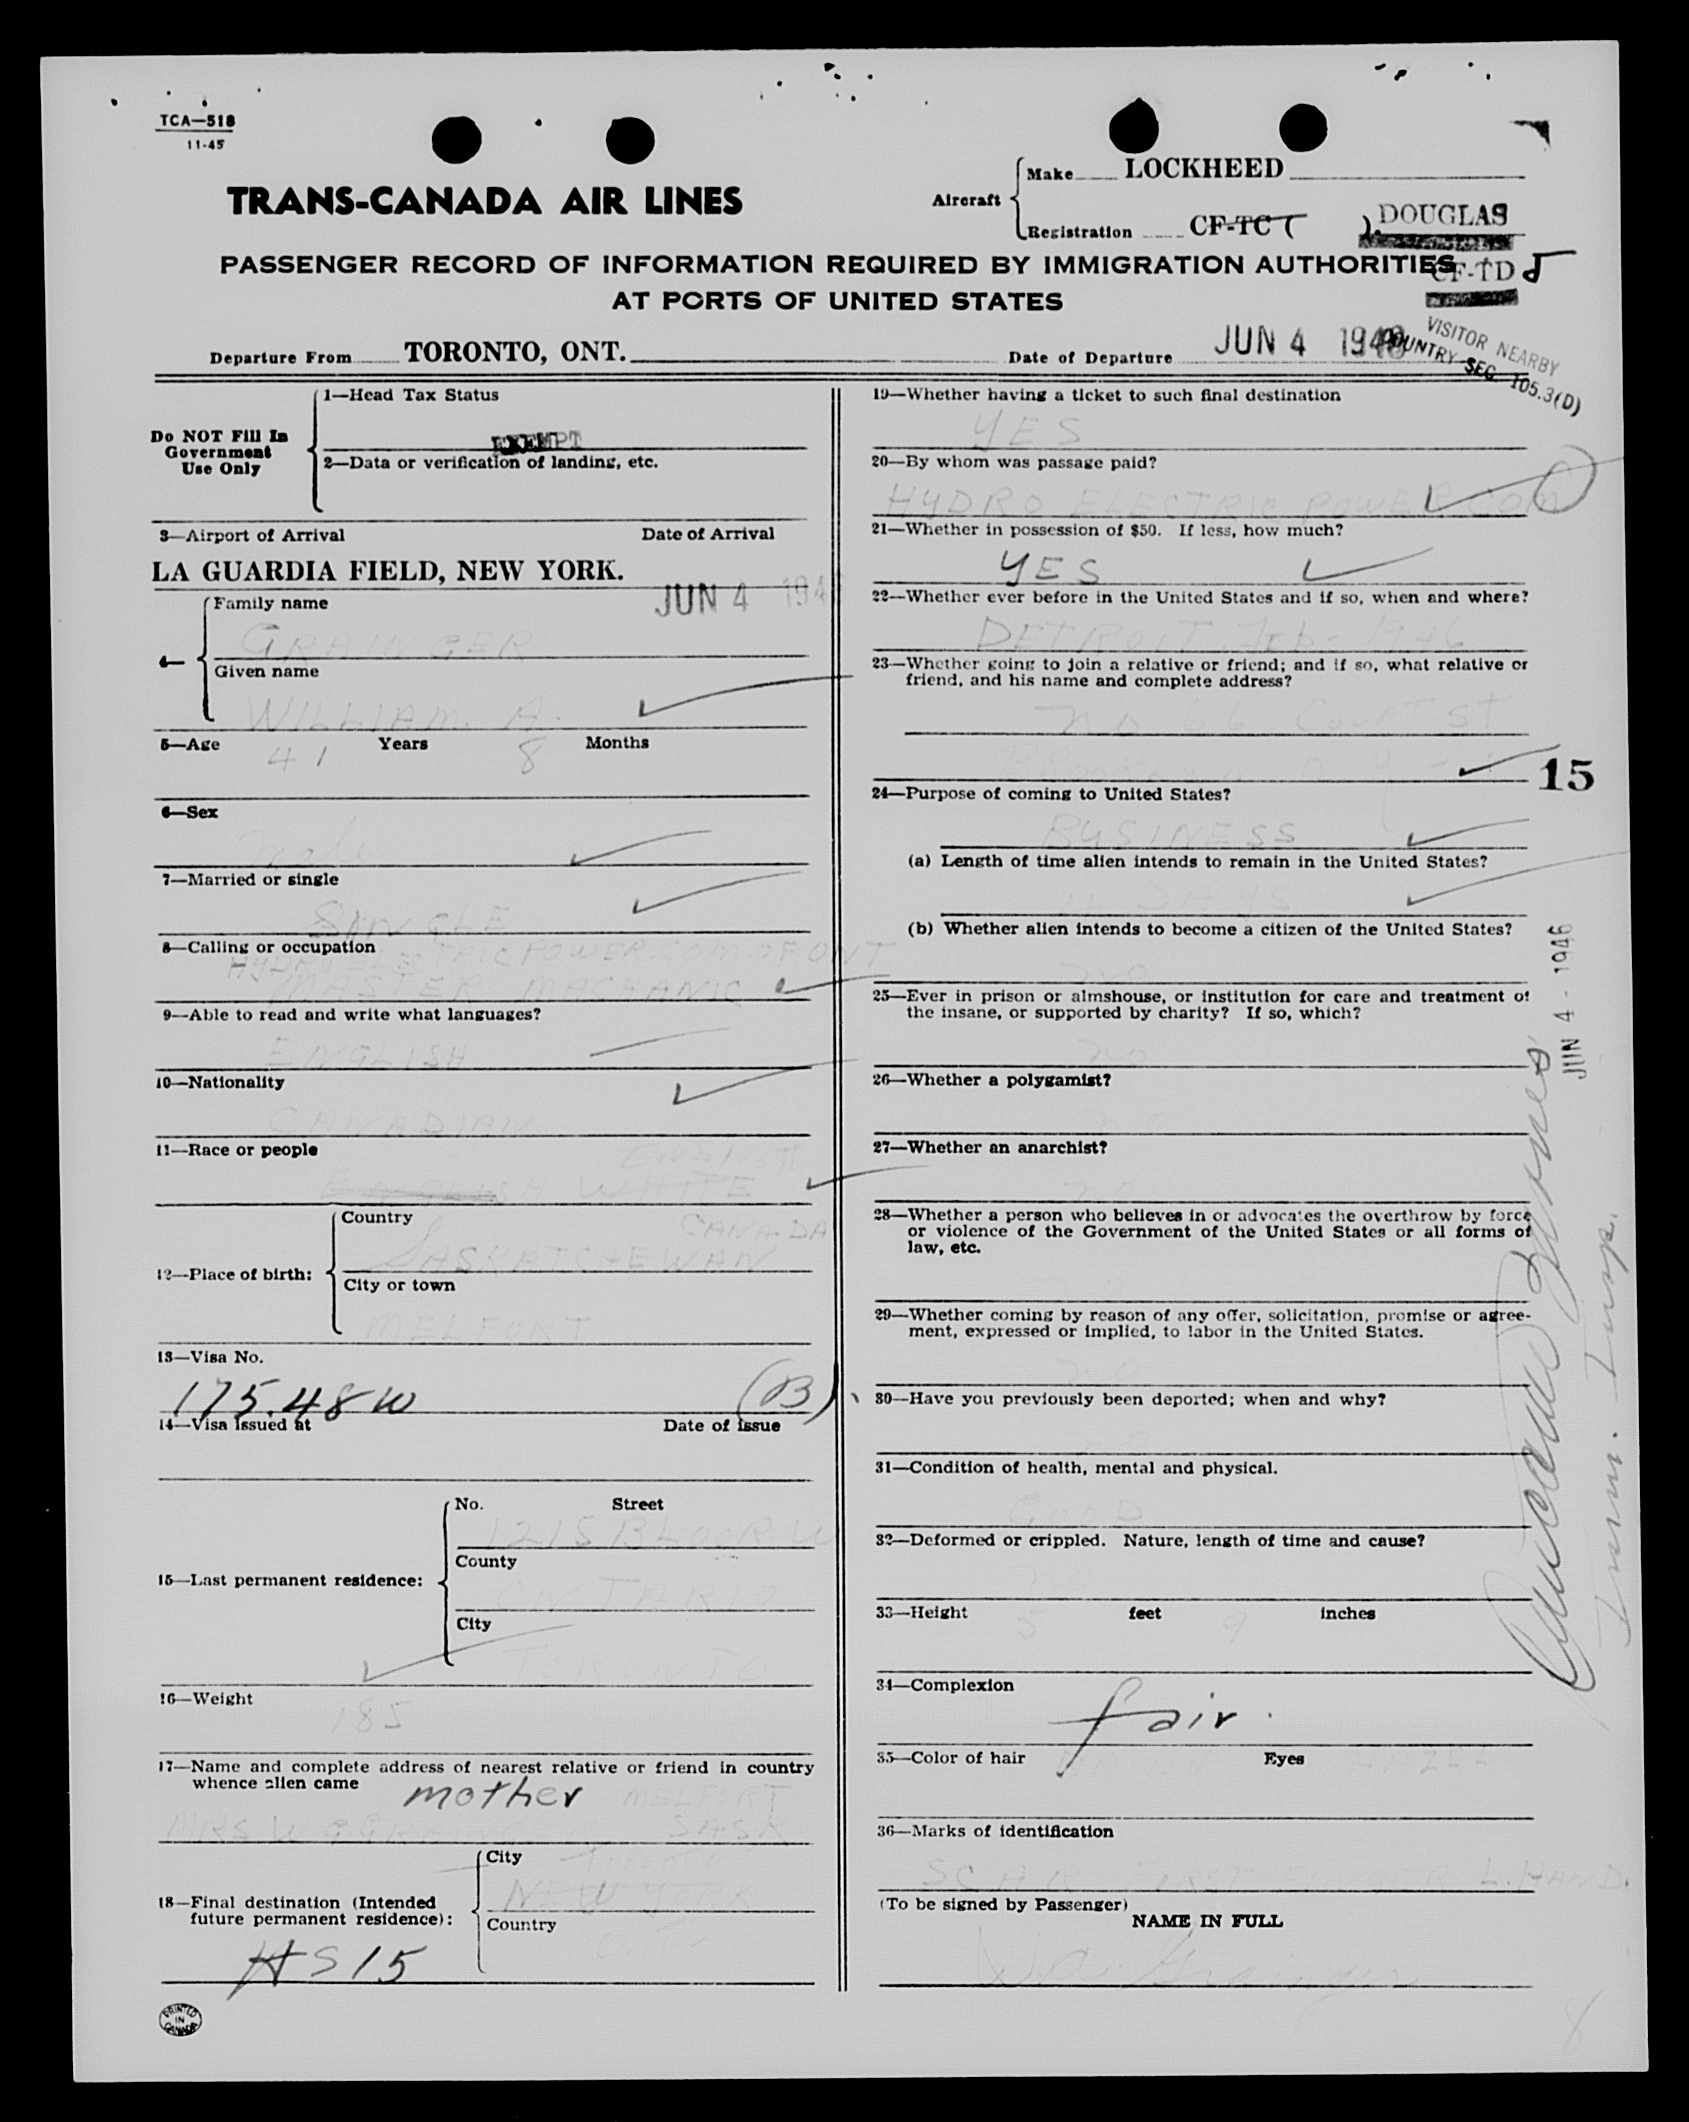 TCA—518
11-45
TRANS-CANADA AIR LINES
Aircraft
Make LOCKHEED
Registration CF-TC ( ). DOUGLAS
CF-TD J
PASSENGER RECORD OF INFORMATION REQUIRED BY IMMIGRATION AUTHORITIES
AT PORTS OF UNITED STATES
VISITOR NEARBY
COUNTRY SEC. 105.3(D)
Departure From TORONTO, ONT. Date of Departure JUN 4 1946
Do NOT Fill In
Government
Use Only
1—Head Tax Status
EXEMPT
2—Data or verification of landing, etc.
3—Airport of Arrival Date of Arrival
LA GUARDIA FIELD, NEW YORK.
JUN 4 194
4—
Family name
GRAINGER
Given name
WILLIAM. A.
5—Age 41 Years 8 Months
6—Sex
male
7—Married or single
SINGLE
8—Calling or occupation
HYDRO ELECTRIC POWER.COM.OF ONT
MASTER MACHANIC
9—Able to read and write what languages?
ENGLISH
10—Nationality
CANADIAN
11—Race or people
ENGLISH WHITE
12—Place of birth:
Country
CANADA
SASKATCHEWAN
City or town
MELFORT
13—Visa No.
175.48W (B)
14—Visa issued at Date of issue
15—Last permanent residence:
No. Street
1215 BLOOR W
County
ONTARIO
City
TORONTO
16—Weight
185
17—Name and complete address of nearest relative or friend in country
whence alien came mother MELFORT
MRS W G GRAINGER SASK
18—Final destination (Intended
future permanent residence):
City
NEW YORK
Country
HS15
PRINTED
IN
CANADA
19—Whether having a ticket to such final destination
YES
20—By whom was passage paid?
HYDRO ELECTRIC POWER COM
21—Whether in possession of $50. If less, how much?
YES
22—Whether ever before in the United States and if so, when and where?
DETROIT. Feb- 1946
23—Whether going to join a relative or friend; and if so, what relative or
friend, and his name and complete address?
no 66 COURT ST
15
24—Purpose of coming to United States?
BUSINESS
(a) Length of time alien intends to remain in the United States?
DAYS
(b) Whether alien intends to become a citizen of the United States?
no
25—Ever in prison or almshouse, or institution for care and treatment of
the insane, or supported by charity? If so, which?
no
26—Whether a polygamist?
no
27—Whether an anarchist?
no
28—Whether a person who believes in or advocates the overthrow by force
or violence of the Government of the United States or all forms of
law, etc.
29—Whether coming by reason of any offer, solicitation, promise or agree-
ment, expressed or implied, to labor in the United States.
no
30—Have you previously been deported; when and why?
31—Condition of health, mental and physical.
GOOD
32—Deformed or crippled. Nature, length of time and cause?
33—Height 5 feet 9 inches
34—Complexion
fair.
35—Color of hair Eyes
36—Marks of identification
SCAR FIRST FINGER L.HAND.
(To be signed by Passenger)
NAME IN FULL
W A Grainger
JUN 4 - 1946
Imm. Insp.